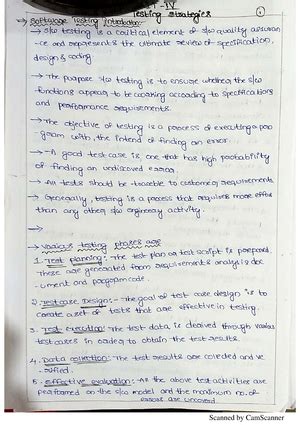 T-IV
Testing strategies
→ Software Testing Introduction
→ s/w testing is a critical element of s/w quality assuran
-ce and represents the ultimate review of specification,
design & coding
→ The purpose s/w testing is to ensure whether the s/w
functions appear to be working according to specifications
and performance requirements.
→ The objective of testing is a process of executing a pro
gram with the intend of finding an error.
→ A good test case is one that has high probability
of finding an undiscovered error.
→ All tests should be traceable to customer requirements
→ Generally, testing is a process that requires more effort
than any other s/w engineery activity.
→ Various testing phases are
1. Test planning:- The test plan or test script is prepared.
These are generated from requirements analysis doc
-ument and program code.
2. Test case Design:- The goal of test case design is to
create a set of tests that are effective in testing.
3. Test execution: The test data is derived through various
test cases in order to obtain the test results.
4. Data collection: The test results are collected and ve
-rified.
5. Effective evaluation:- As the above test activities are
performed on the s/w model and the maximum no. of
errors are uncoved
Scanned by CamScanner